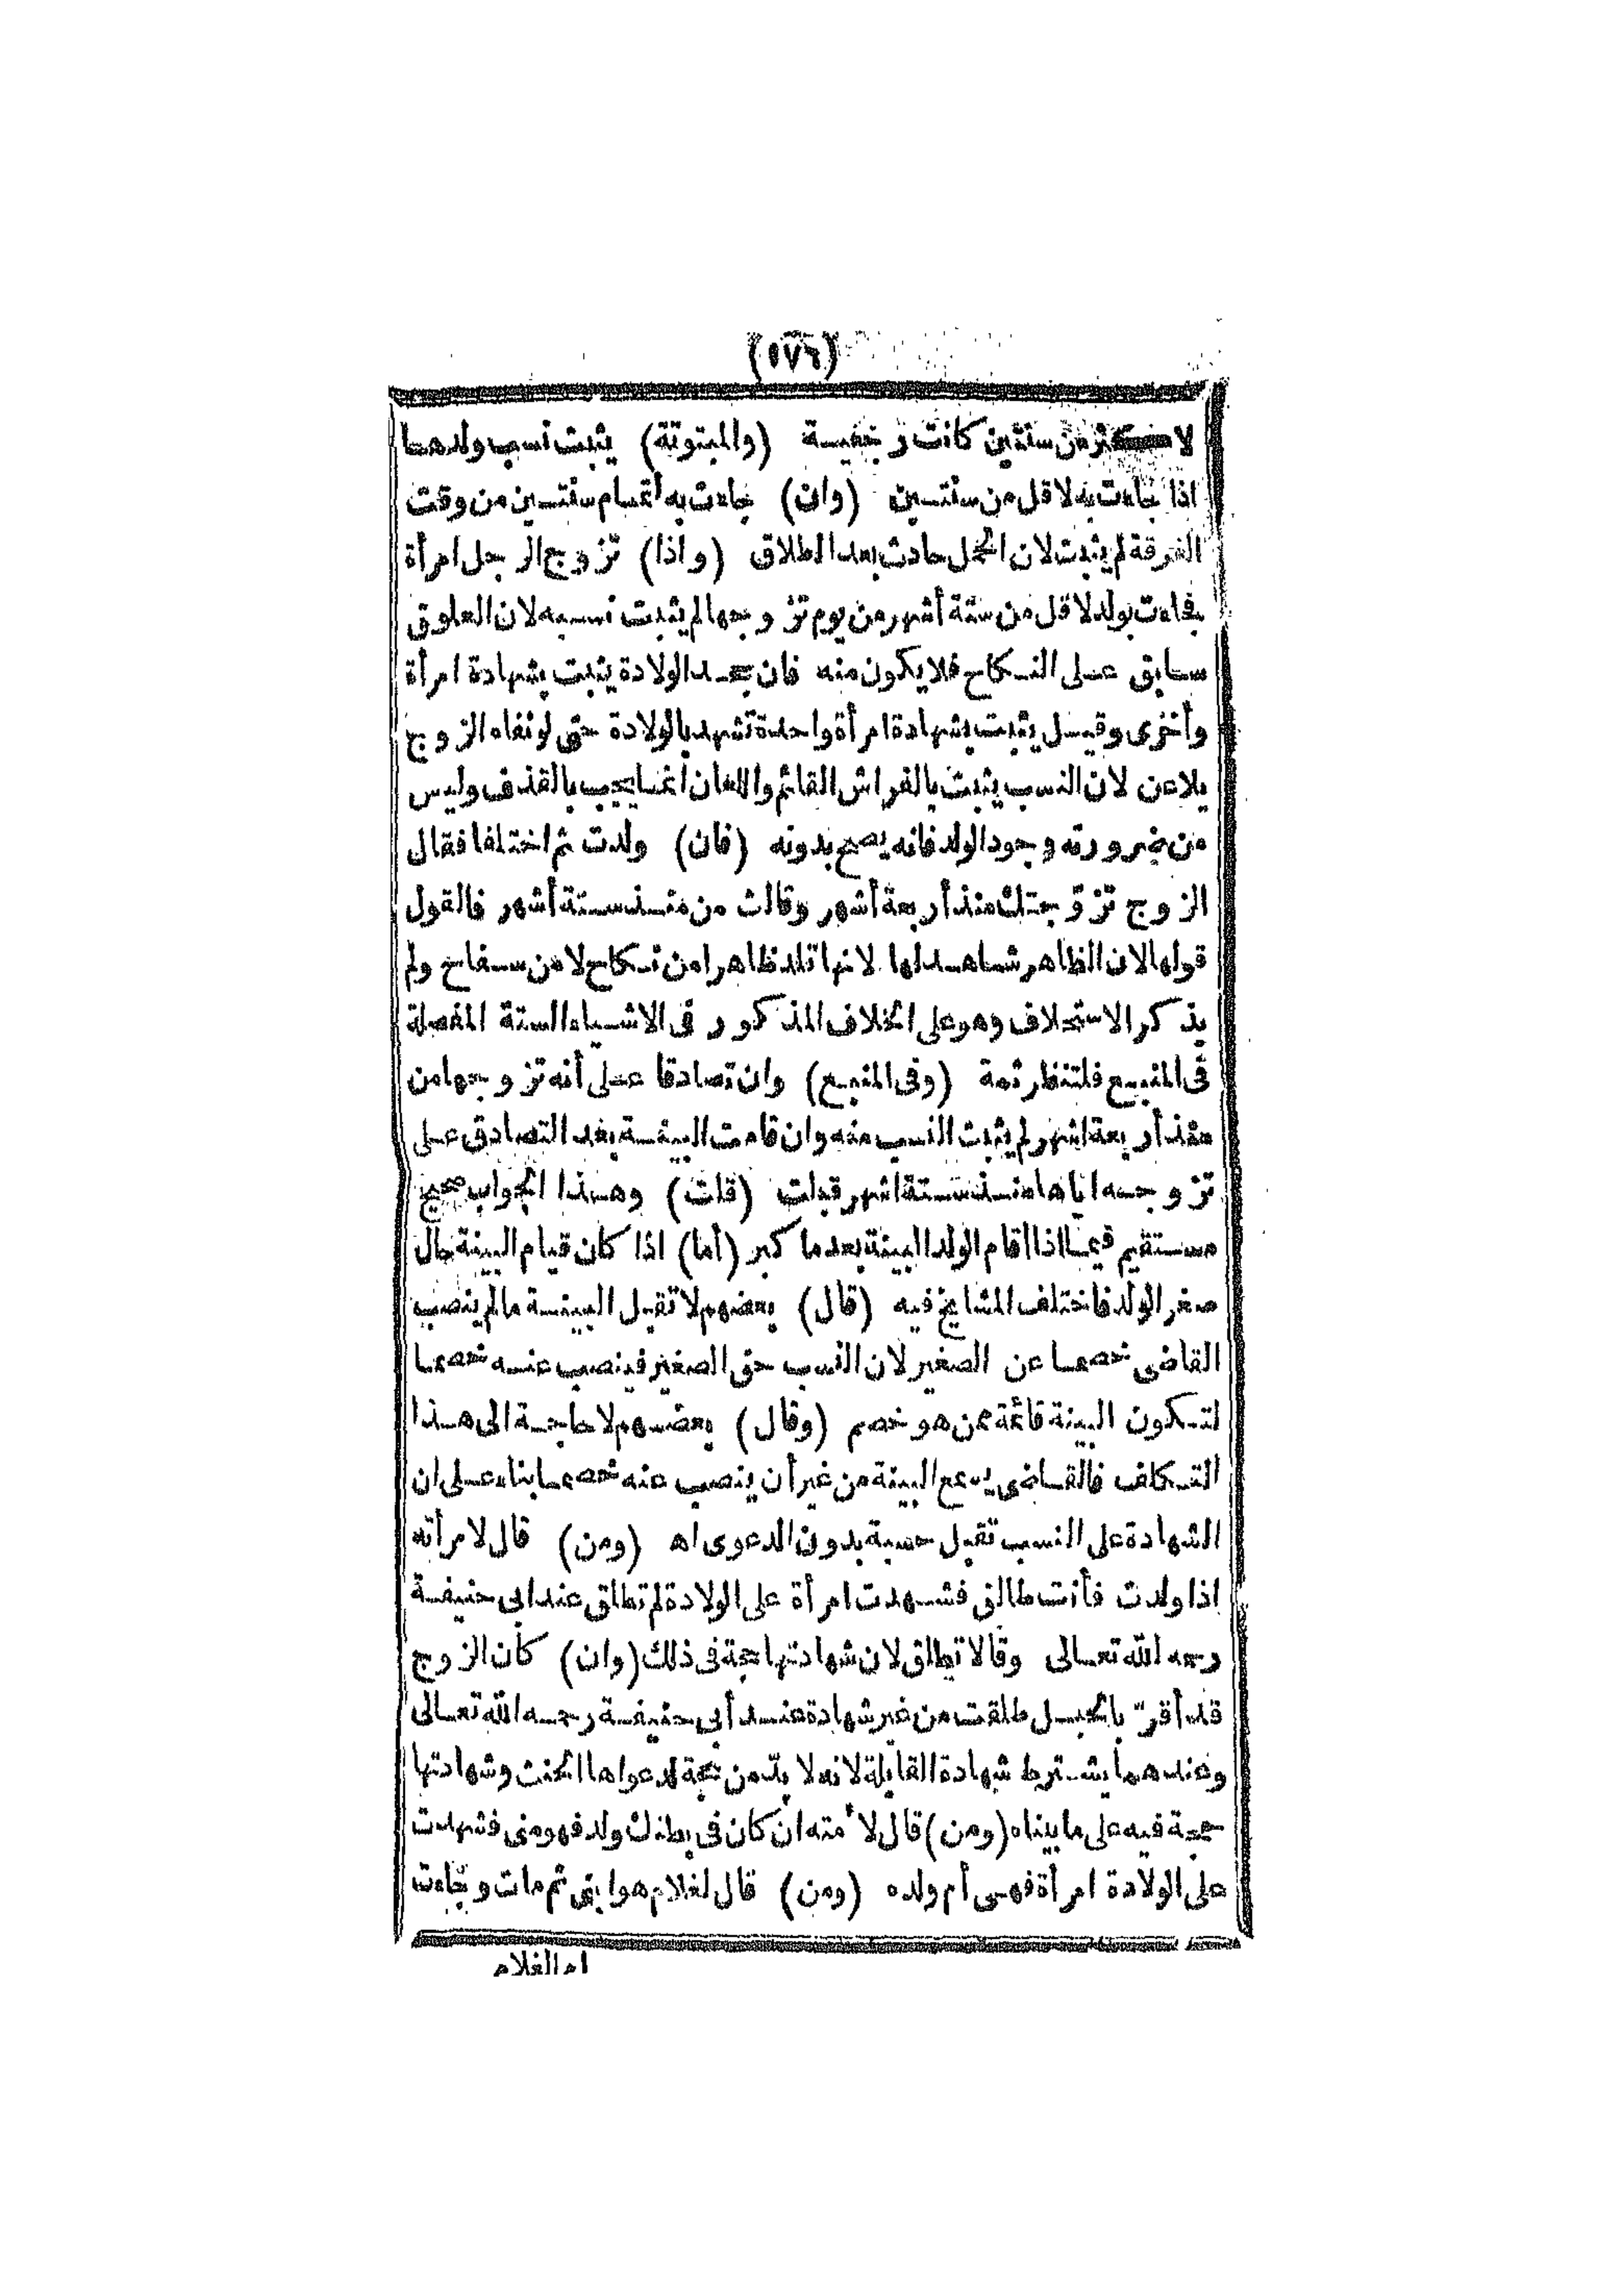 (١٧٦)
لاكثر من سنتين كانت رجعية (والمبتوتة) يثبت نسب ولدها
اذا جاءت به لاقل من سنتين (وان) جاءت به لتمام سنتين من وقت
الفرقة لم يثبت لان الحمل حادث بعد الطلاق (واذا) تزوج الرجل امرأة
فجاءت بولد لاقل من ستة أشهر من يوم تزوجها لم يثبت نسبه لان العلوق
سابق على النكاح فلا يكون منه فان جحد الولادة يثبت بشهادة امرأة
وأخرى وقيل يثبت بشهادة امرأة واحدة تشهد بالولادة حتى لو نفاه الزوج
يلاعن لان النسب يثبت بالفراش القائم واللعان انما يجب بالقذف وليس
من ضرورته وجود الولد فانه يصح بدونه (فان) ولدت ثم اختلفا فقال
الزوج تزوّجتك منذ أربعة أشهر وقالت من منذ ستة أشهر فالقول
قولها لان الظاهر شاهد لها لانها تلد ظاهرا من نكاح لا من سفاح ولم
يذكر الاستحلاف وهو على الخلاف المذكور فى الاشياء الستة المفصلة
فى المنبع فلتنظر ثمة (وفى المنبع) وان تصادقا على أنه تزوجها من
منذ أربعة اشهر لم يثبت النسب منه وان قامت البينة بعد التصادق على
تزوجه اياها منذ ستة اشهر قبلت (قلت) وهذا الجواب صحيح
مستقيم فيما اذا أقام الولد البينة بعدما كبر (أما) اذا كان قيام البينة حال
صغر الولد فاختلف المشايخ فيه (قال) بعضهم لا تقبل البينة مالم ينصب
القاضى خصما عن الصغير لان النسب حق الصغير فينصب عنه خصما
لتكون البينة قائمة ممن هو خصم (وقال) بعضهم لا حاجة الى هذا
التكلف فالقاضى يسمع البينة من غير أن ينصب عنه خصما بناء على ان
الشهادة على النسب تقبل حسبة بدون الدعوى اه (ومن) قال لامرأته
اذا ولدت فأنت طالق فشهدت امرأة على الولادة لم تطلق عند ابى حنيفة
رحمه الله تعالى وقالا تطلق لان شهادتها حجة فى ذلك (وان) كان الزوج
قد أقرّ بالحبل طلقت من غير شهادة عند أبى حنيفة رحمه الله تعالى
وعندهما يشترط شهادة القابلة لانه لا بدّ من حجة لدعواها الحنث وشهادتها
حجة فيه على ما بيناه (ومن) قال لأمته ان كان فى بطنك ولد فهو منى فشهدت
على الولادة امرأة فهى أم ولده (ومن) قال لغلام هو ابنى ثم مات وجاءت
ام الغلام